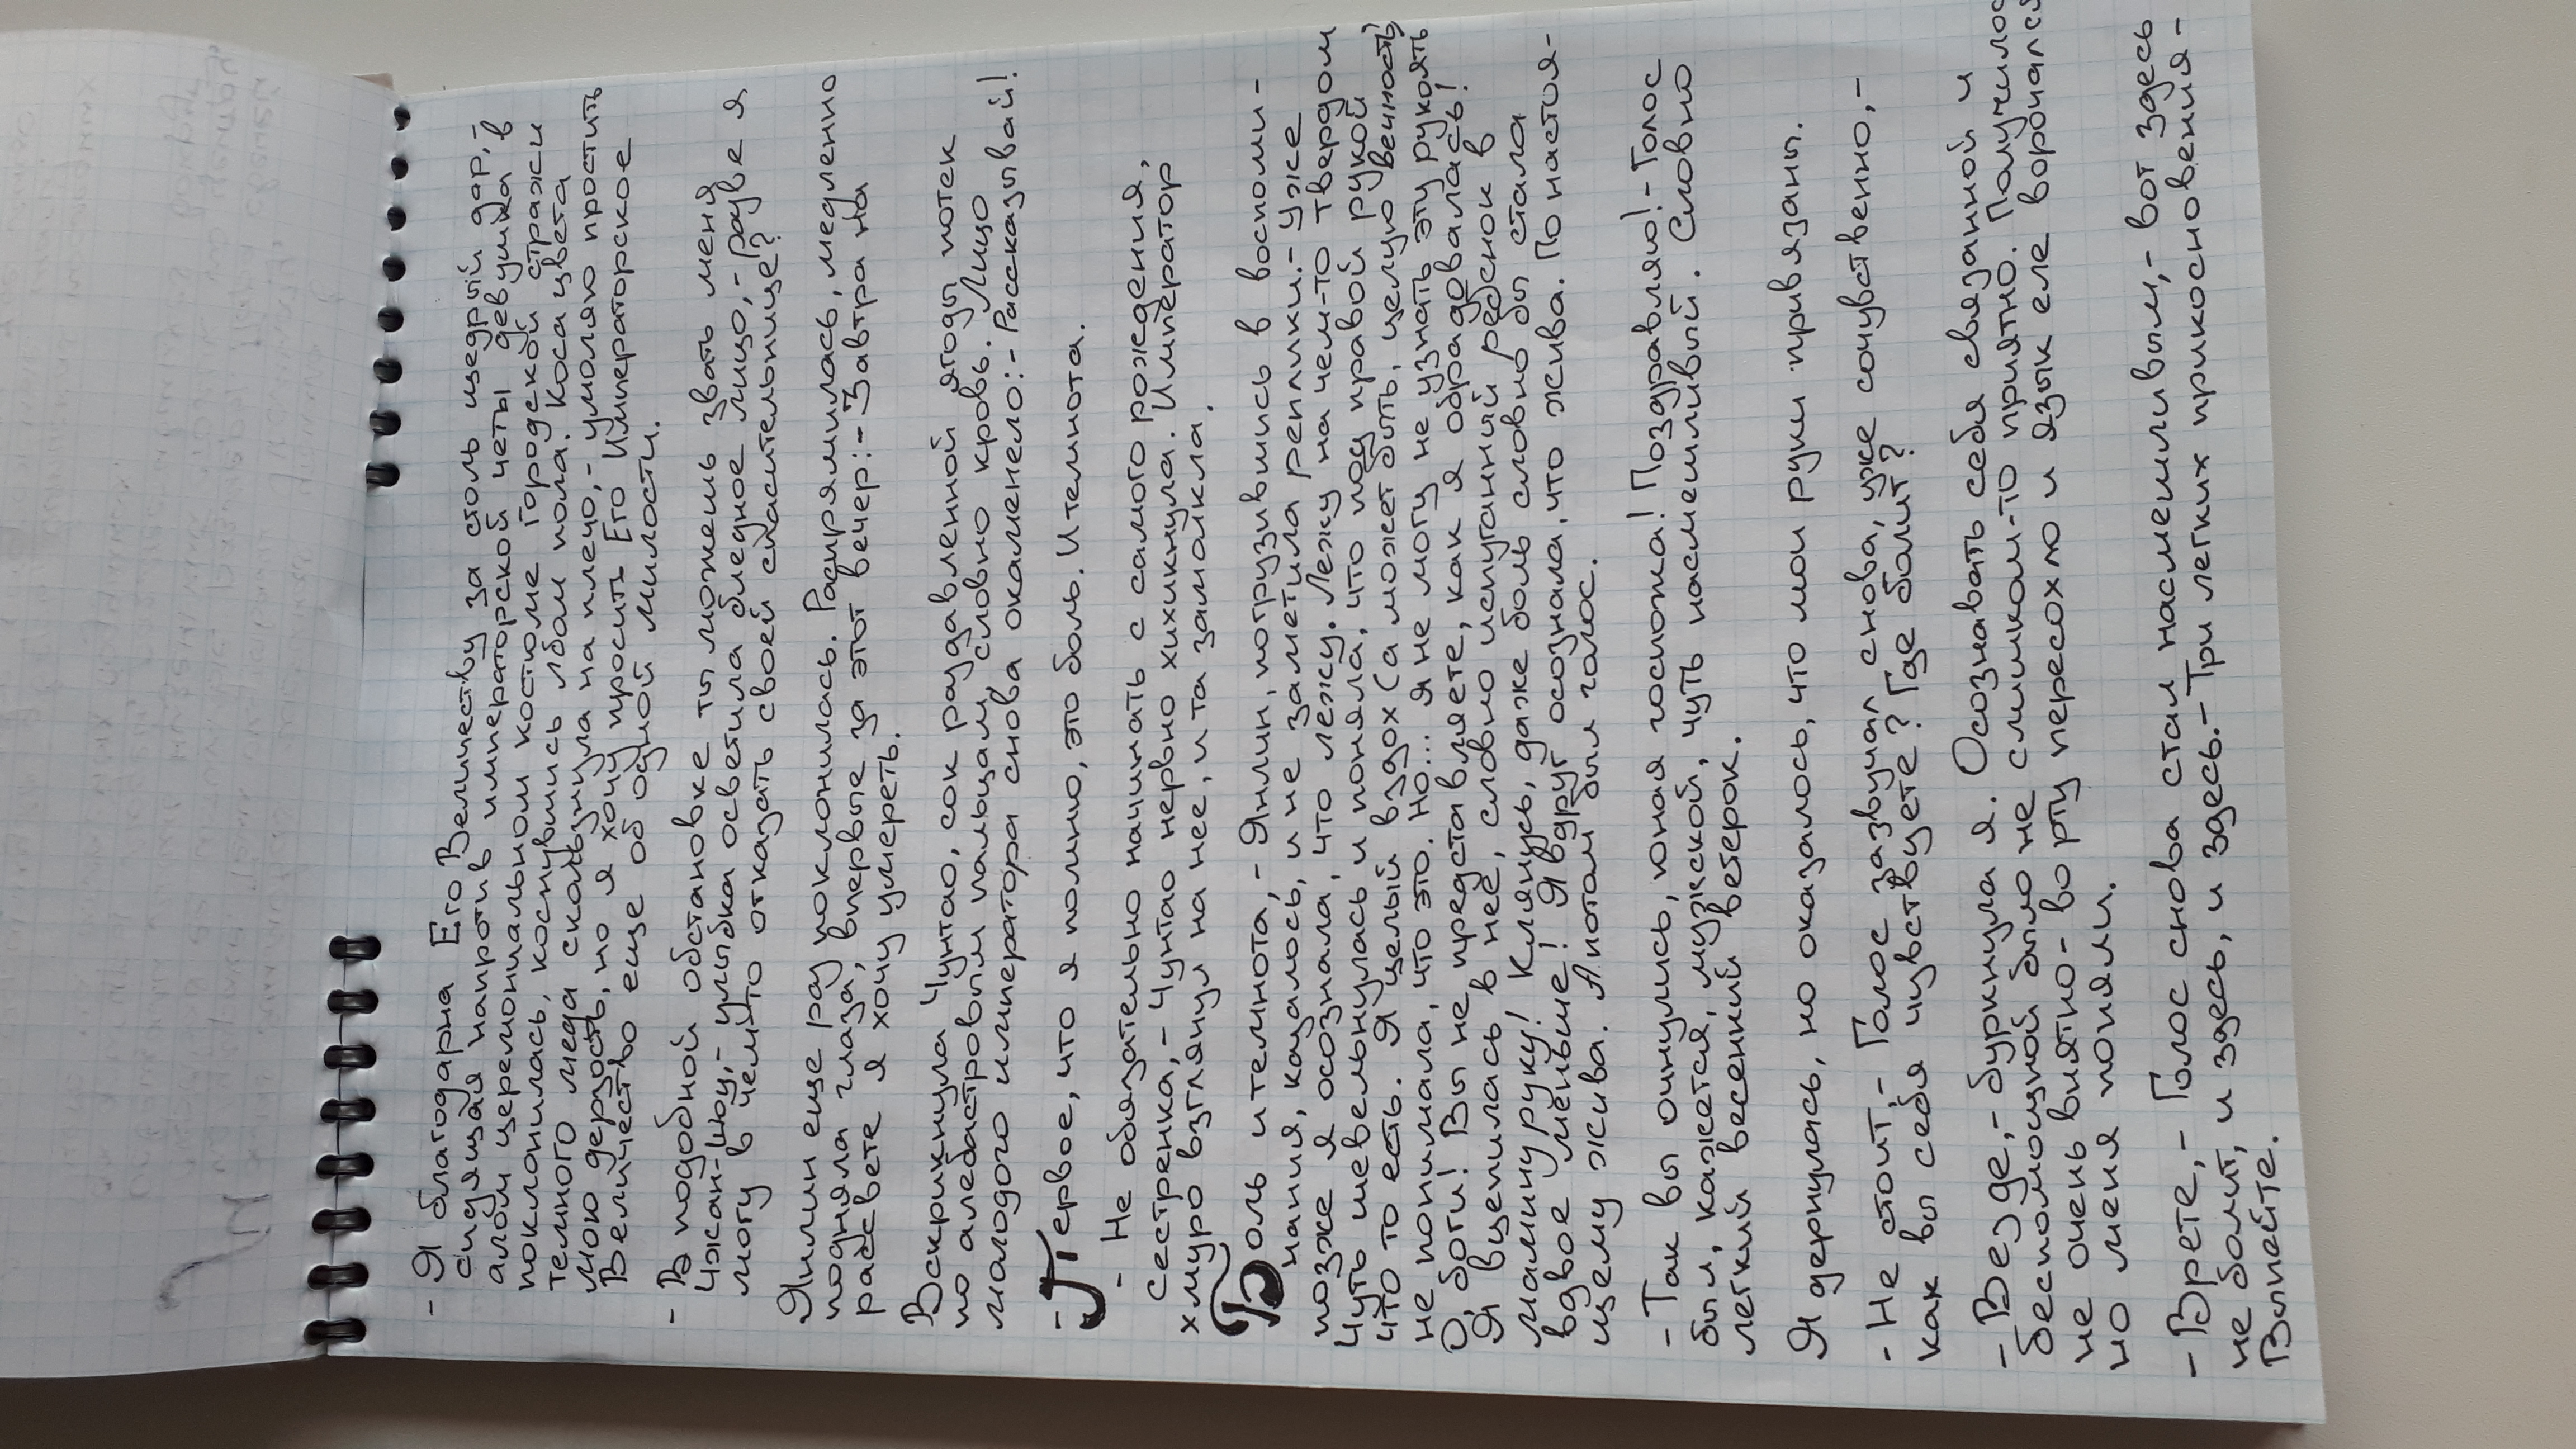 - Я благодарна Его Величеству за столь щедрый дар, -
сидящая напротив императорской четы девушка в
алом церемониальном костюме городской стражи
поклонилась, коснувшись лбом пола. Коса цвета
темного меда скользнула на плечо, - умоляю простить
мою дерзость, но я хочу просить Его Императорское
Величество еще об одной милости.
- В подобной обстановке ты можешь звать меня
Чжан-шоу, - улыбка осветила бледное лицо, - разве я
могу в чем-то отказать своей спасительнице?
Янлин еще раз поклонилась. Распрямилась, медленно
подняла глаза, впервые за этот вечер: - Завтра на
рассвете я хочу умереть.
Вскрикнула Чунтао, сок раздавленной ягоды потек
по алебастровым пальцам, словно кровь. Лицо
молодого императора снова окаменело: - Рассказывай!
- Первое, что я помню, это боль. И темнота.
- Не обязательно начинать с самого рождения,
сестренка, - Чунтао нервно хихикнула. Император
хмуро взглянул на нее, и та замолкла.
Боль и темнота, - Янлин, погрузившись в воспоми-
нания, казалось, и не заметила реплики. - Уже
позже я осознала, что лежу. Лежу на чем-то твердом
Чуть шевельнулась и поняла, что под правой рукой
что то есть. Я целый вздох (а может быть, целую вечность)
не понимала, что это. Но... я не могу не узнать эту рукоять
О, боги! Вы не представляете, как я обрадовалась!
Я вцепилась в неё, словно испуганный ребенок в
мамину руку! Клянусь, даже боль словно бы стала
вдвое меньше! Я вдруг осознала, что жива. По настоя-
щему жива. А потом был голос.
- Так вы очнулись, юная госпожа! Поздравляю! - Голос
был, кажется, мужской, чуть насмешливый. Словно
легкий весенний ветерок.
Я дернулась, но оказалось, что мои руки привязаны.
- Не стоит, - Голос зазвучал снова, уже сочувственно, -
как вы себя чувствуете? Где болит?
- Везде, - буркнула я. Осознавать себя связанной и
беспомощной было не слишком-то приятно. Получилос
не очень внятно - во рту пересохло и язык еле ворочался
но меня поняли.
- Врете, - Голос снова стал насмешливым, - вот здесь
не болит, и здесь, и здесь. - Три легких прикосновения -
Выпейте.